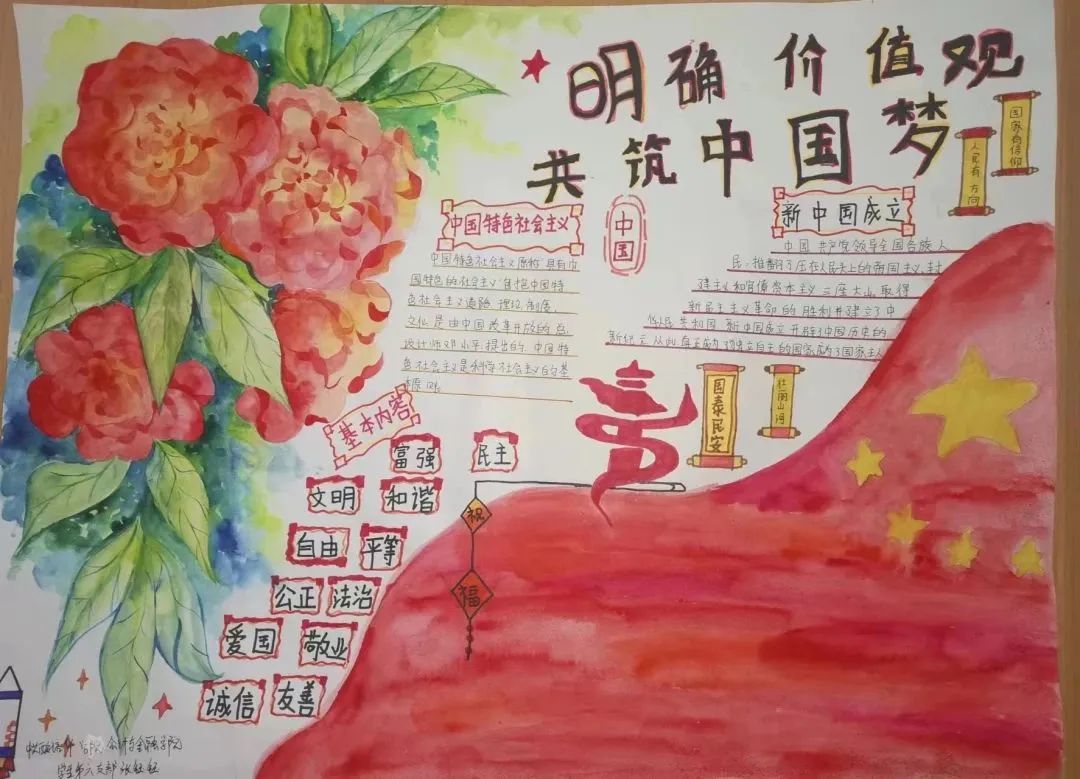 明确价值观
共筑中国梦
国家有信仰
人民有方向
中国特色社会主义
中国
新中国成立
中国特色社会主义原称"具有中
国特色的社会主义"包括中国特
色社会主义道路、理论、制度、
文化是由中国改革开放的总
设计师邓小平提出的,中国特
色社会主义是科学社会主义的基
本原
中国共产党领导全国各族人
民,推翻了压在人民头上的帝国主义、封
建主义和官僚资本主义三座大山,取得
新民主主义革命的胜利并建立了中
华人民共和国,新中国成立开辟了中国历史的
新纪元从此真正成为独立自主的国家成了国家主人
国泰民安
壮丽山河
基本内容
富强
民主
文明
和谐
自由
平等
公正
法治
爱国
敬业
诚信
友善
祝
福
学院
金融学院
学生第六支部